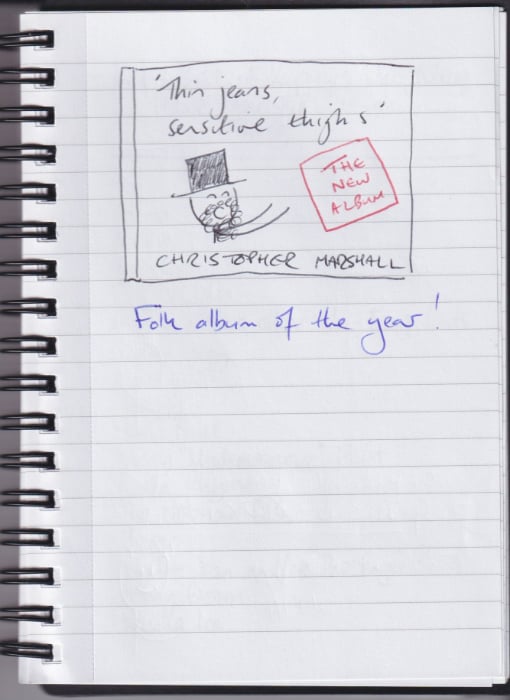 'Thin jeans,
sensitive thighs'
THE
NEW
ALBUM
CHRISTOPHER MARSHALL
Folk album of the year!